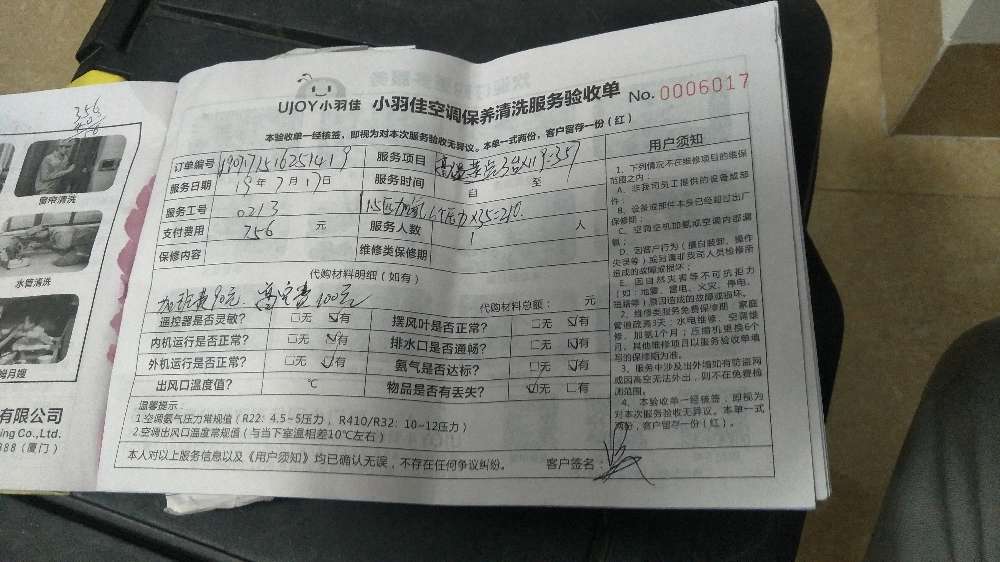 356
窗帘清洗
水管清洗
有限公司
ing Co.,Ltd.
888（厦门）
UJOY小羽佳 小羽佳空调保养清洗服务验收单 No. 0006017
本验收单一经核签，即视为对本次服务验收无异议。本单一式两份，客户留存一份（红）
订单编号 服务项目 高温蒸气3台x119=357
服务日期 19年7月17日 服务时间 自 至
服务工号 0213 1.5匹加氟6个压力x35=210
支付费用 756 元 服务人数 1 人
保修内容 维修类保修期
代购材料明细（如有）
加班费90元 高空费100元 代购材料总额： 元
遥控器是否灵敏？ □无 ☑有 摆风叶是否正常？ □无 ☑有
内机运行是否正常？ □无 ☑有 排水口是否通畅？ □无 ☑有
外机运行是否正常？ □无 ☑有 氨气是否达标？ □无 ☑有
出风口温度值？ ℃ 物品是否有丢失？ ☑无 □有
温馨提示：
1.空调氨气压力常规值（R22: 4.5~5压力， R410/R32: 10~12压力）
2.空调出风口温度常规值（与当下室温相差10℃左右）
本人对以上服务信息以及《用户须知》均已确认无误，不存在任何争议纠纷。 客户签名：
用户须知
1、下列情况不在维修项目的维保
范围之内：
A、非我司员工提供的设备或部
件；
B、设备或部件本身已经超过出厂
保修期；
C、空调空机加氨或空调内部漏
氨；
D、因客户行为（擅自装卸、操作
失误等）或知请非我司人员检修所
造成的故障或损坏；
E、因自然灾害等不可抗拒力
（如：地震、雷电、火灾、停电、
阻塞等）原因造成的故障或损坏。
2、维修类服务免费保修期：家庭
管道疏通3天；水电维修、空调维
修、加氨1个月；压缩机更换6个
月。其他维修项目以服务验收单填
写的保修期为准。
3、服务中涉及出外墙如有防盗网
或因高空无法外出，则不在免费检
测范围。
4、本验收单一经核签，即视为
对本次服务验收无异议。本单一式
两份，客户留存一份（红）。